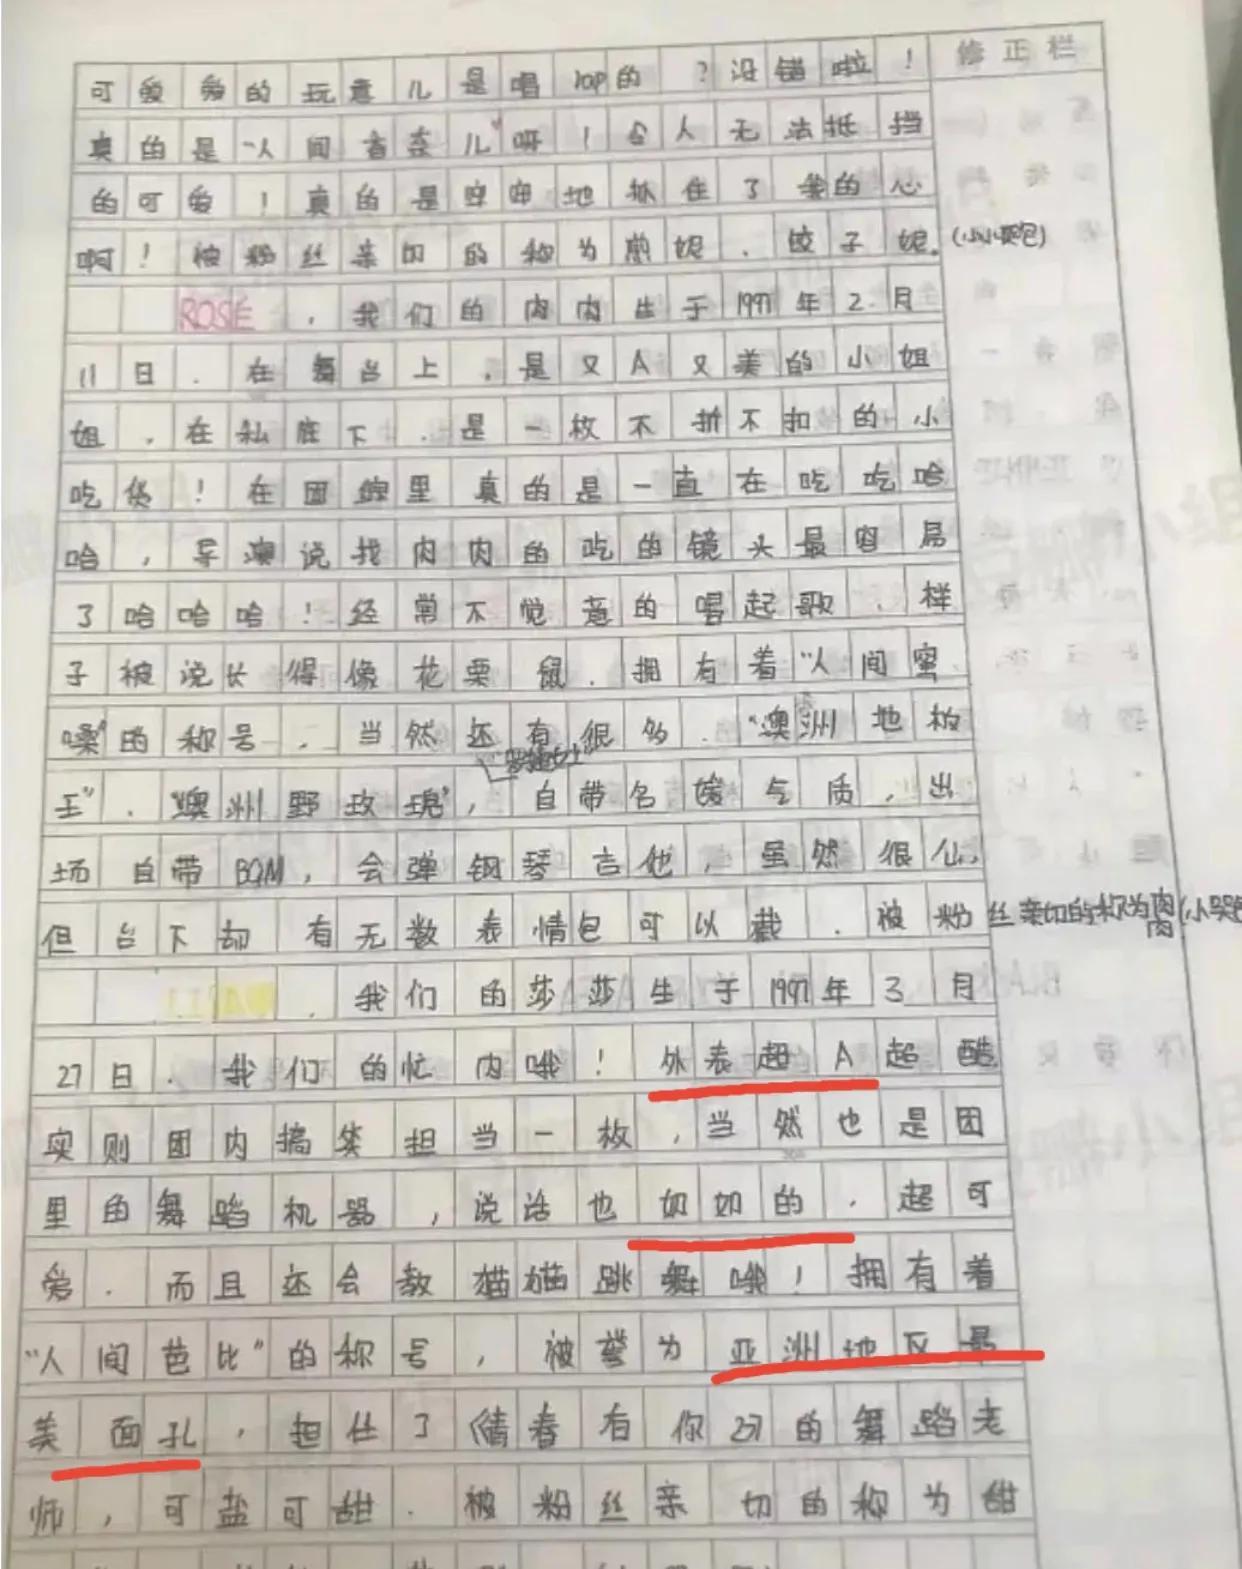 可爱爱的玩意儿是唱rap的?没错啦!
修正栏
真的是"人间香奈儿"呀!令人无法抵挡
的可爱!真的是牢牢地抓住了我的心
啊!被粉丝亲切的称为煎妮、饺子妮。(小小哭包)
ROSÉ,我们的肉肉生于1997年2月
11日.在舞台上,是又A又美的小姐
姐,在私底下.是一枚不折不扣的小
吃货!在团综里真的是一直在吃吃哈
哈,导演说找肉肉的吃的镜头最容易
了哈哈哈!经常不觉意的唱起歌、样
子被说长得像花栗鼠.拥有着"人间蜜
嗓"的称号.当然还有很多."澳洲地柏
王"."澳洲野玫瑰",自带名媛气质,出
场自带BGM,会弹钢琴吉他,虽然很仙,
但台下却有无数表情包可以截.被粉丝亲切的称为肉肉(小哭包
,我们的莎莎生于1997年3月
27日.我们的忙内哦!外表超A超酷
实则团内搞笑担当一枚,当然也是团
里的舞蹈机器,说话也奶奶的.超可
爱.而且还会教猫猫跳舞哦!拥有着
"人间芭比"的称号,被誉为亚洲地区最
美面孔,担任了《青春有你2》的舞蹈老
师,可盐可甜.被粉丝亲切的称为甜